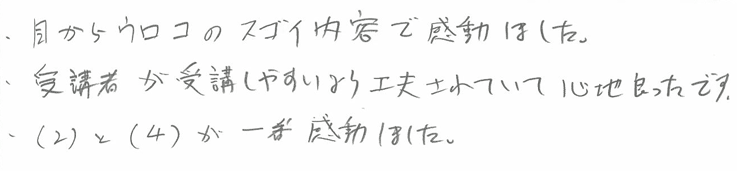 ・目からウロコのスゴイ内容で感動しました。
・受講者が受講しやすいよう工夫されていて心地良ったです。
・(2)と(4)が一番感動しました。